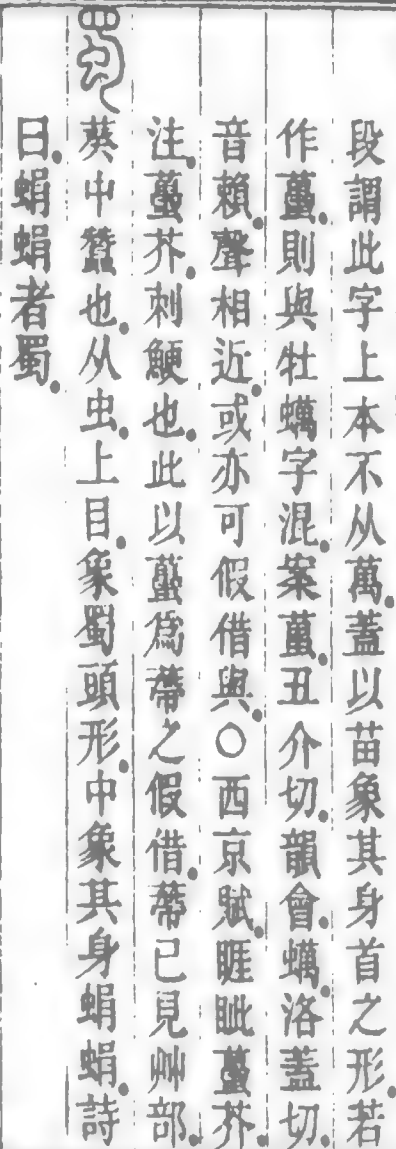 段謂此字上本不从萬。蓋以苗象其身首之形。若
作蠆。則與牡蠣字混。案蠆丑介切。韻會。蠣洛蓋切。
音賴。聲相近。或亦可假借與。○西京賦。睚眦蠆芥。
注。蠆芥。刺鯁也。此以蠆爲蔕之假借。蔕已見艸部。
蜀葵中蠶也。从虫。上目。象蜀頭形。中象其身蜎蜎。詩
曰。蜎蜎者蜀。